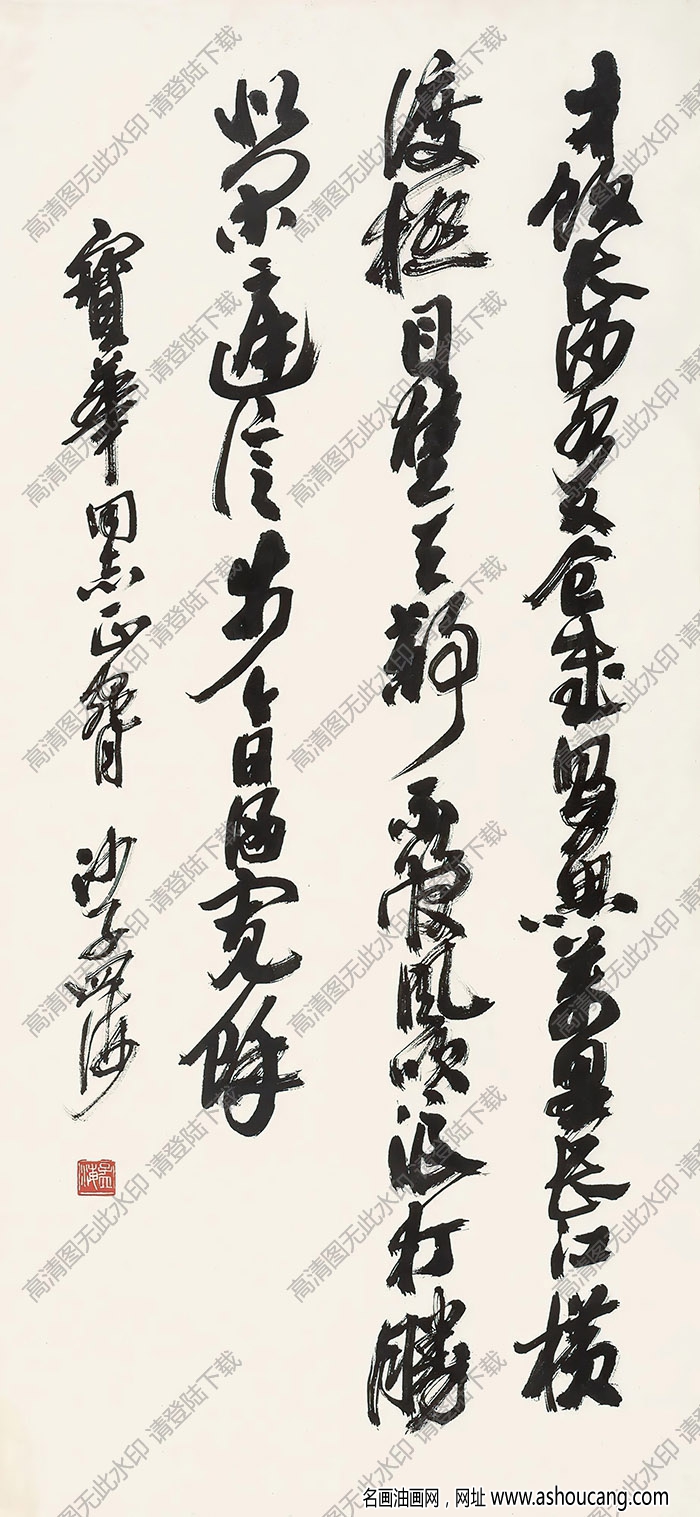 才飲長沙水又食武昌魚萬里長江橫
渡極目楚天舒不管風吹浪打勝
似閒庭信步今日得寬餘
寶華同志正 沙孟海
孟海
高清图无此水印 请登陆下载
名画油画网，网址 www.ashoucang.com